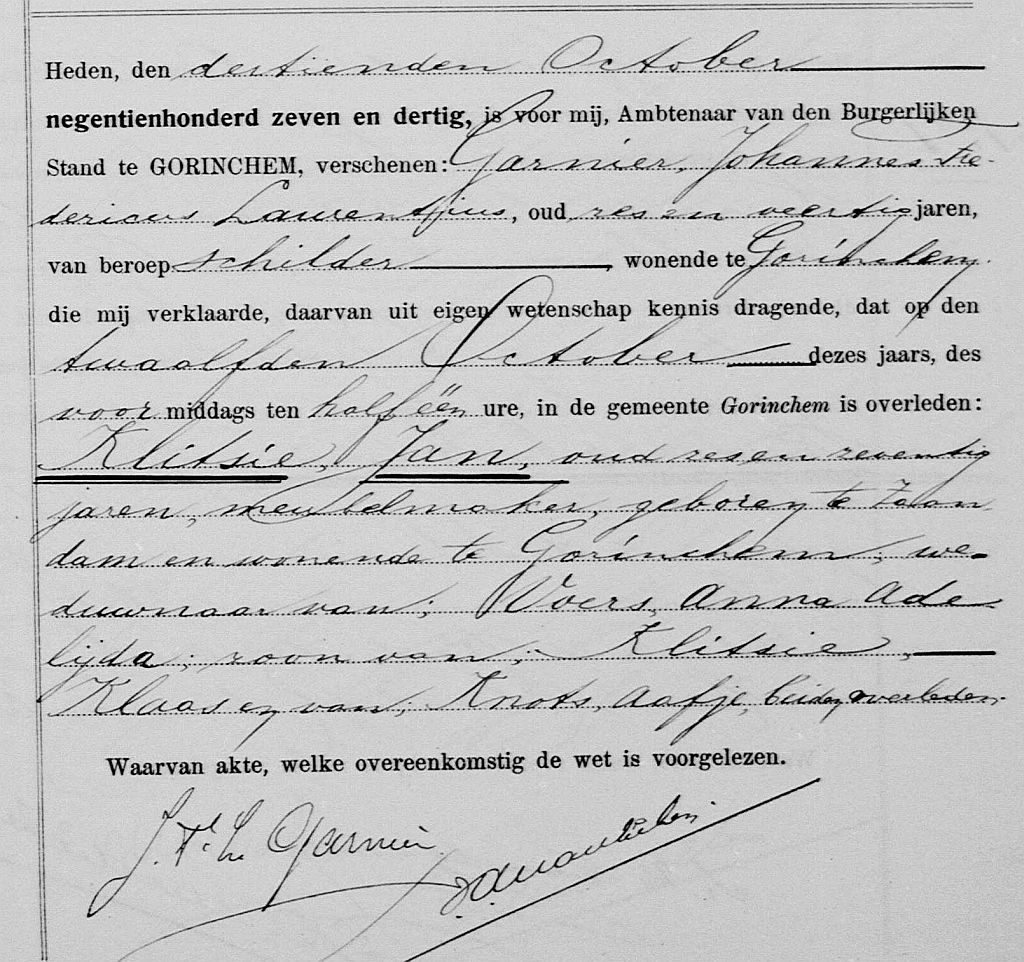 Heden, den dertienden October
negentienhonderd zeven en dertig, is voor mij, Ambtenaar van den Burgerlijken
Stand te GORINCHEM, verschenen: Garnier, Johannes Fre-
dericus Laurentius, oud zes en veertig jaren,
van beroep schilder, wonende te Gorinchem,
die mij verklaarde, daarvan uit eigen wetenschap kennis dragende, dat op den
twaalfden October dezes jaars, des
voor middags ten half één ure, in de gemeente Gorinchem is overleden:
Klitsie, Jan, oud zes en zeventig
jaren, meubelmaker, geboren te Zaan
dam en wonende te Gorinchem, we-
duwnaar van; Woers, Anna Ade
lijda; zoon van; Klitsie,
Klaas en van; Knots, Aafje, beiden overleden.
Waarvan akte, welke overeenkomstig de wet is voorgelezen.
J. F. L. Garnier